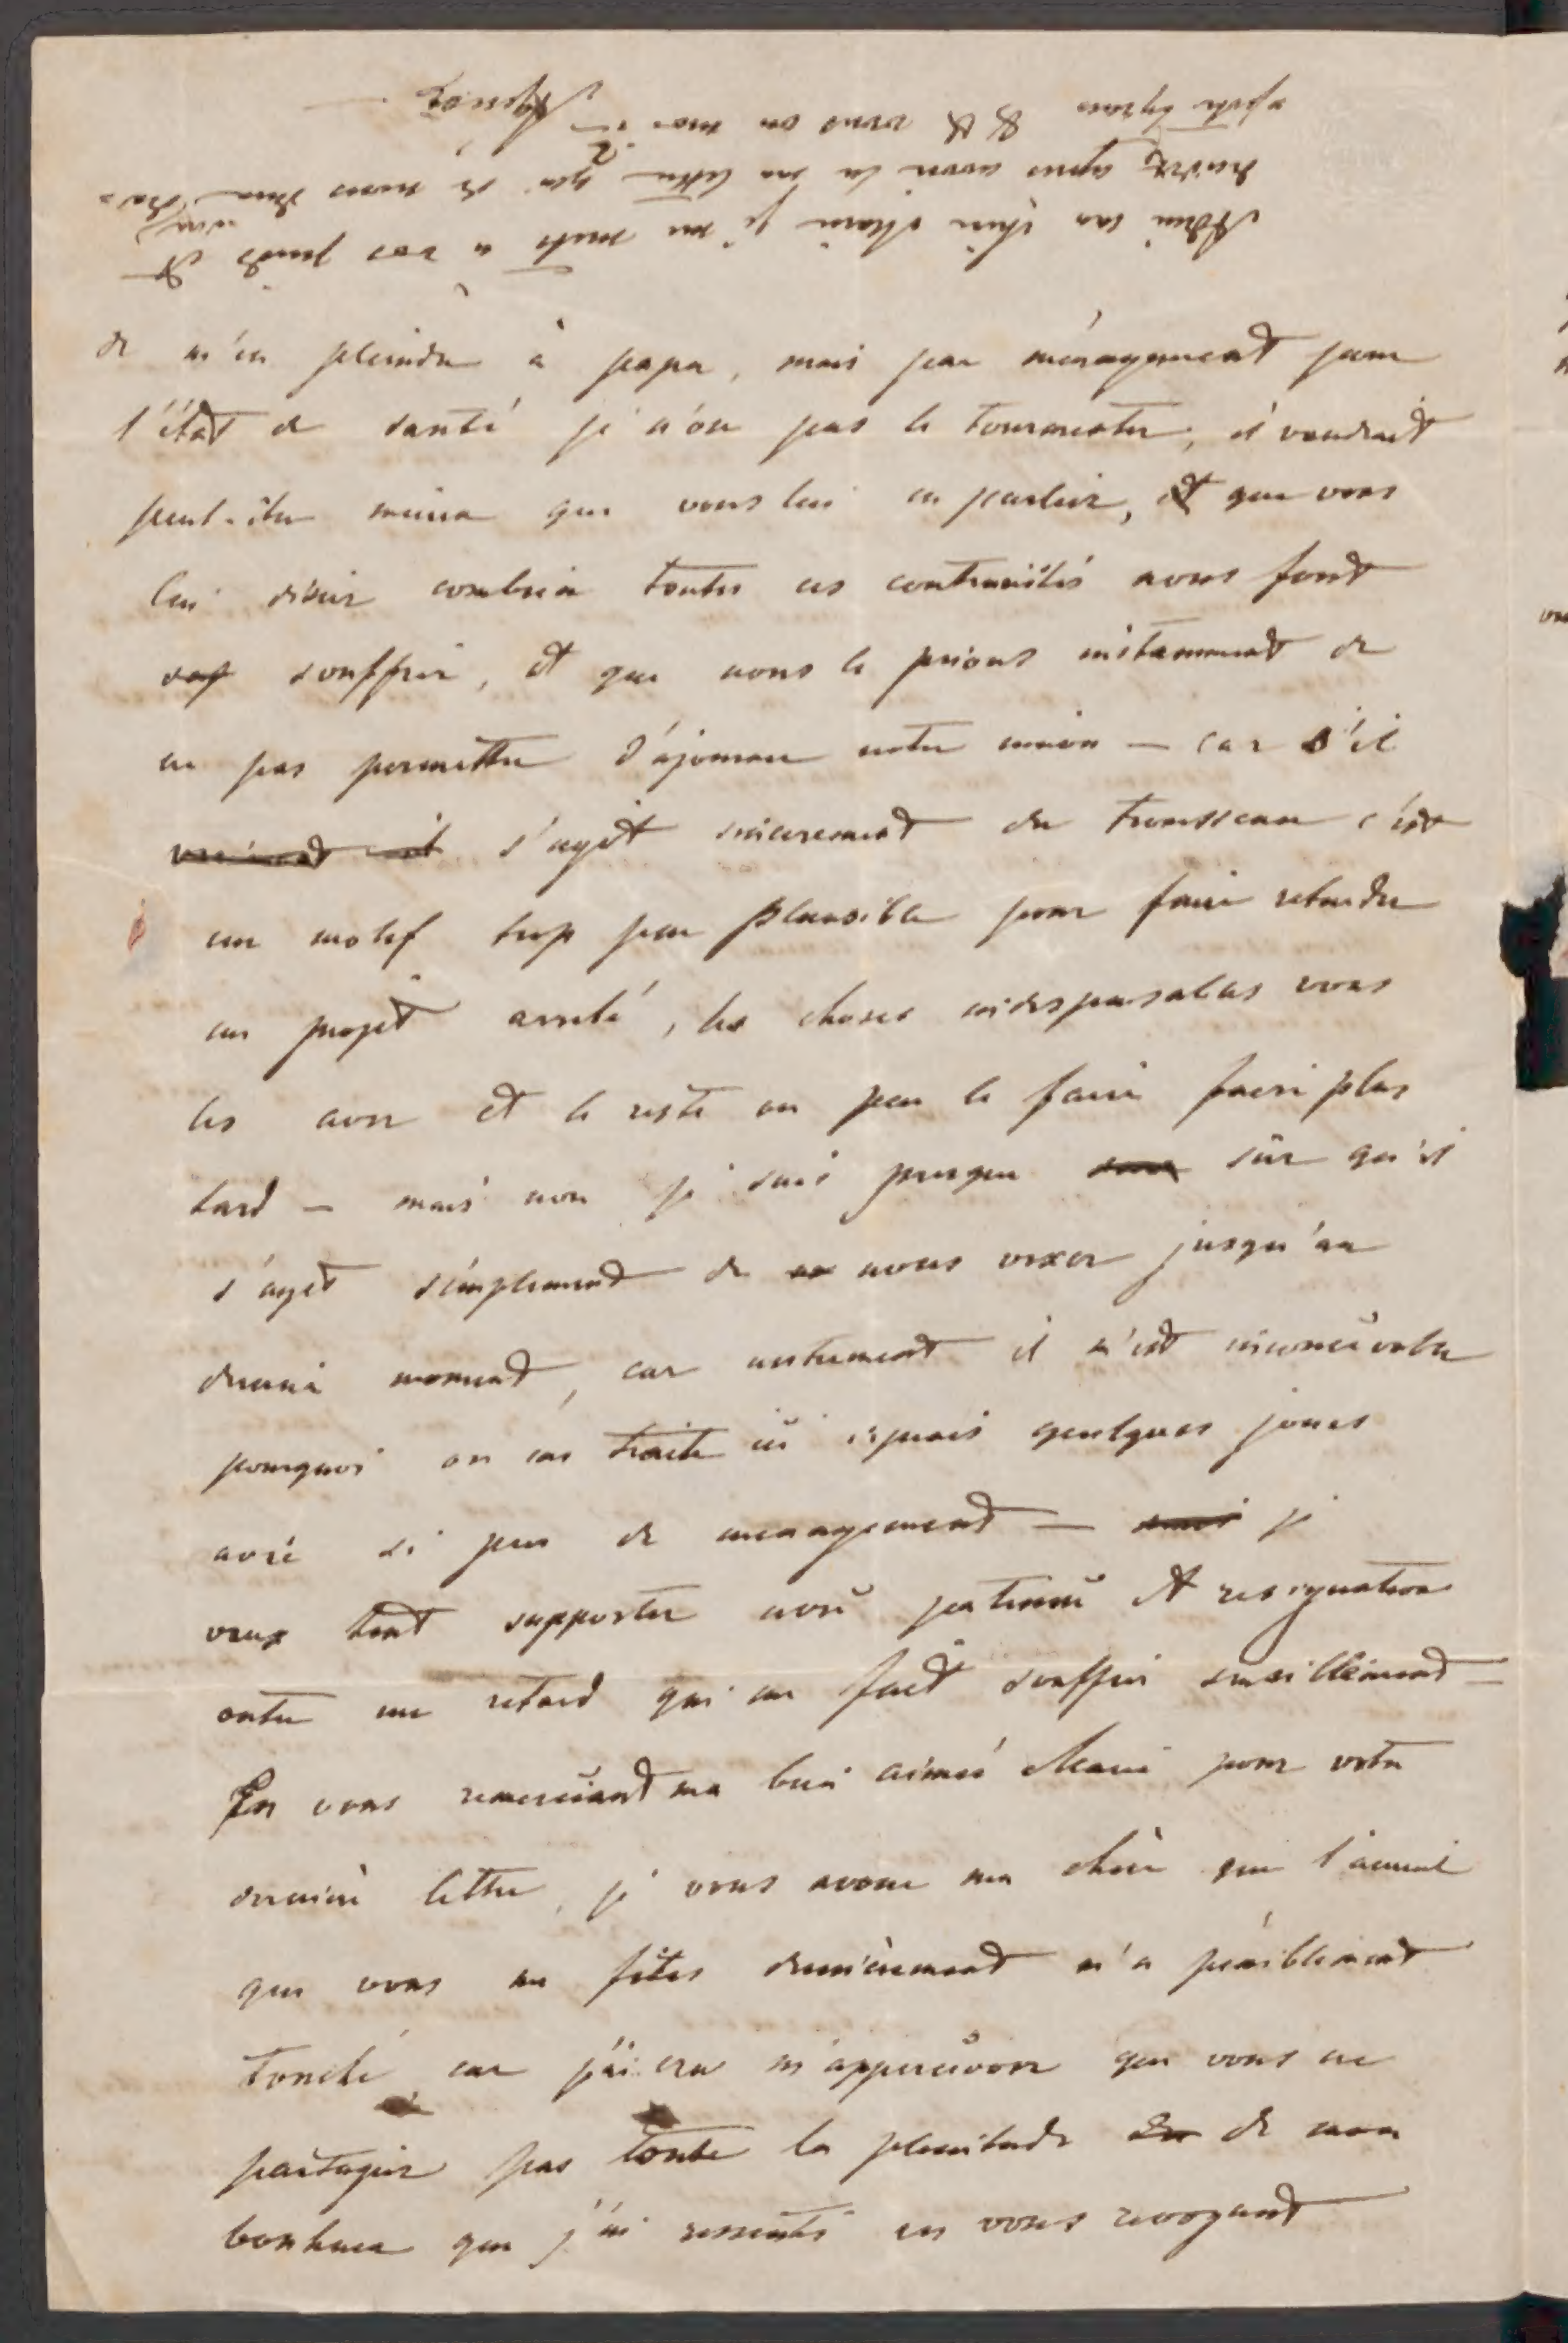 de m'en pleindre à papa, mais par ménagement pour
l'état de santé je n'ose pas le tourmenter, il vaudrait
peut-être mieux que vous lui en parliez, et que vous
lui disiez combien toutes ces contrariétés nous font
souffrir, et que nous le prions instamment de
ne pas permettre d'ajourner notre union — car s'il
s'agit sincerement du trousseau c'est
un motif trop peu plausible pour faire retarder
un projet arrêté, les choses indispensables vous
les avez et le reste on peu le faire faire plus
tard — mais non je suis presque sûr qu'il
s'agit simplement de nous vexer jusqu'au
dernier moment, car autrement il m'est inconcevable
pourquoi on me traite ici depuis quelques jours
avec si peu de menagement — je
veux tout supporter avec patience et resignation
outre un retard qui me fait souffrir
En vous remerciant ma bien aimée Marie pour votre
dernière lettre, je vous avoue ma chère que
que vous me fites dernièrement m'a péniblement
touché car j'ai cru m'appercevoir que vous ne
partagiez pas toute la plenitude de mon
bonheur que j'ai ressenti en vous revoyant
Adieu ma chère Marie je me mets à vos pieds et
après avoir lu ma lettre qui de nous deux
vous ou moi